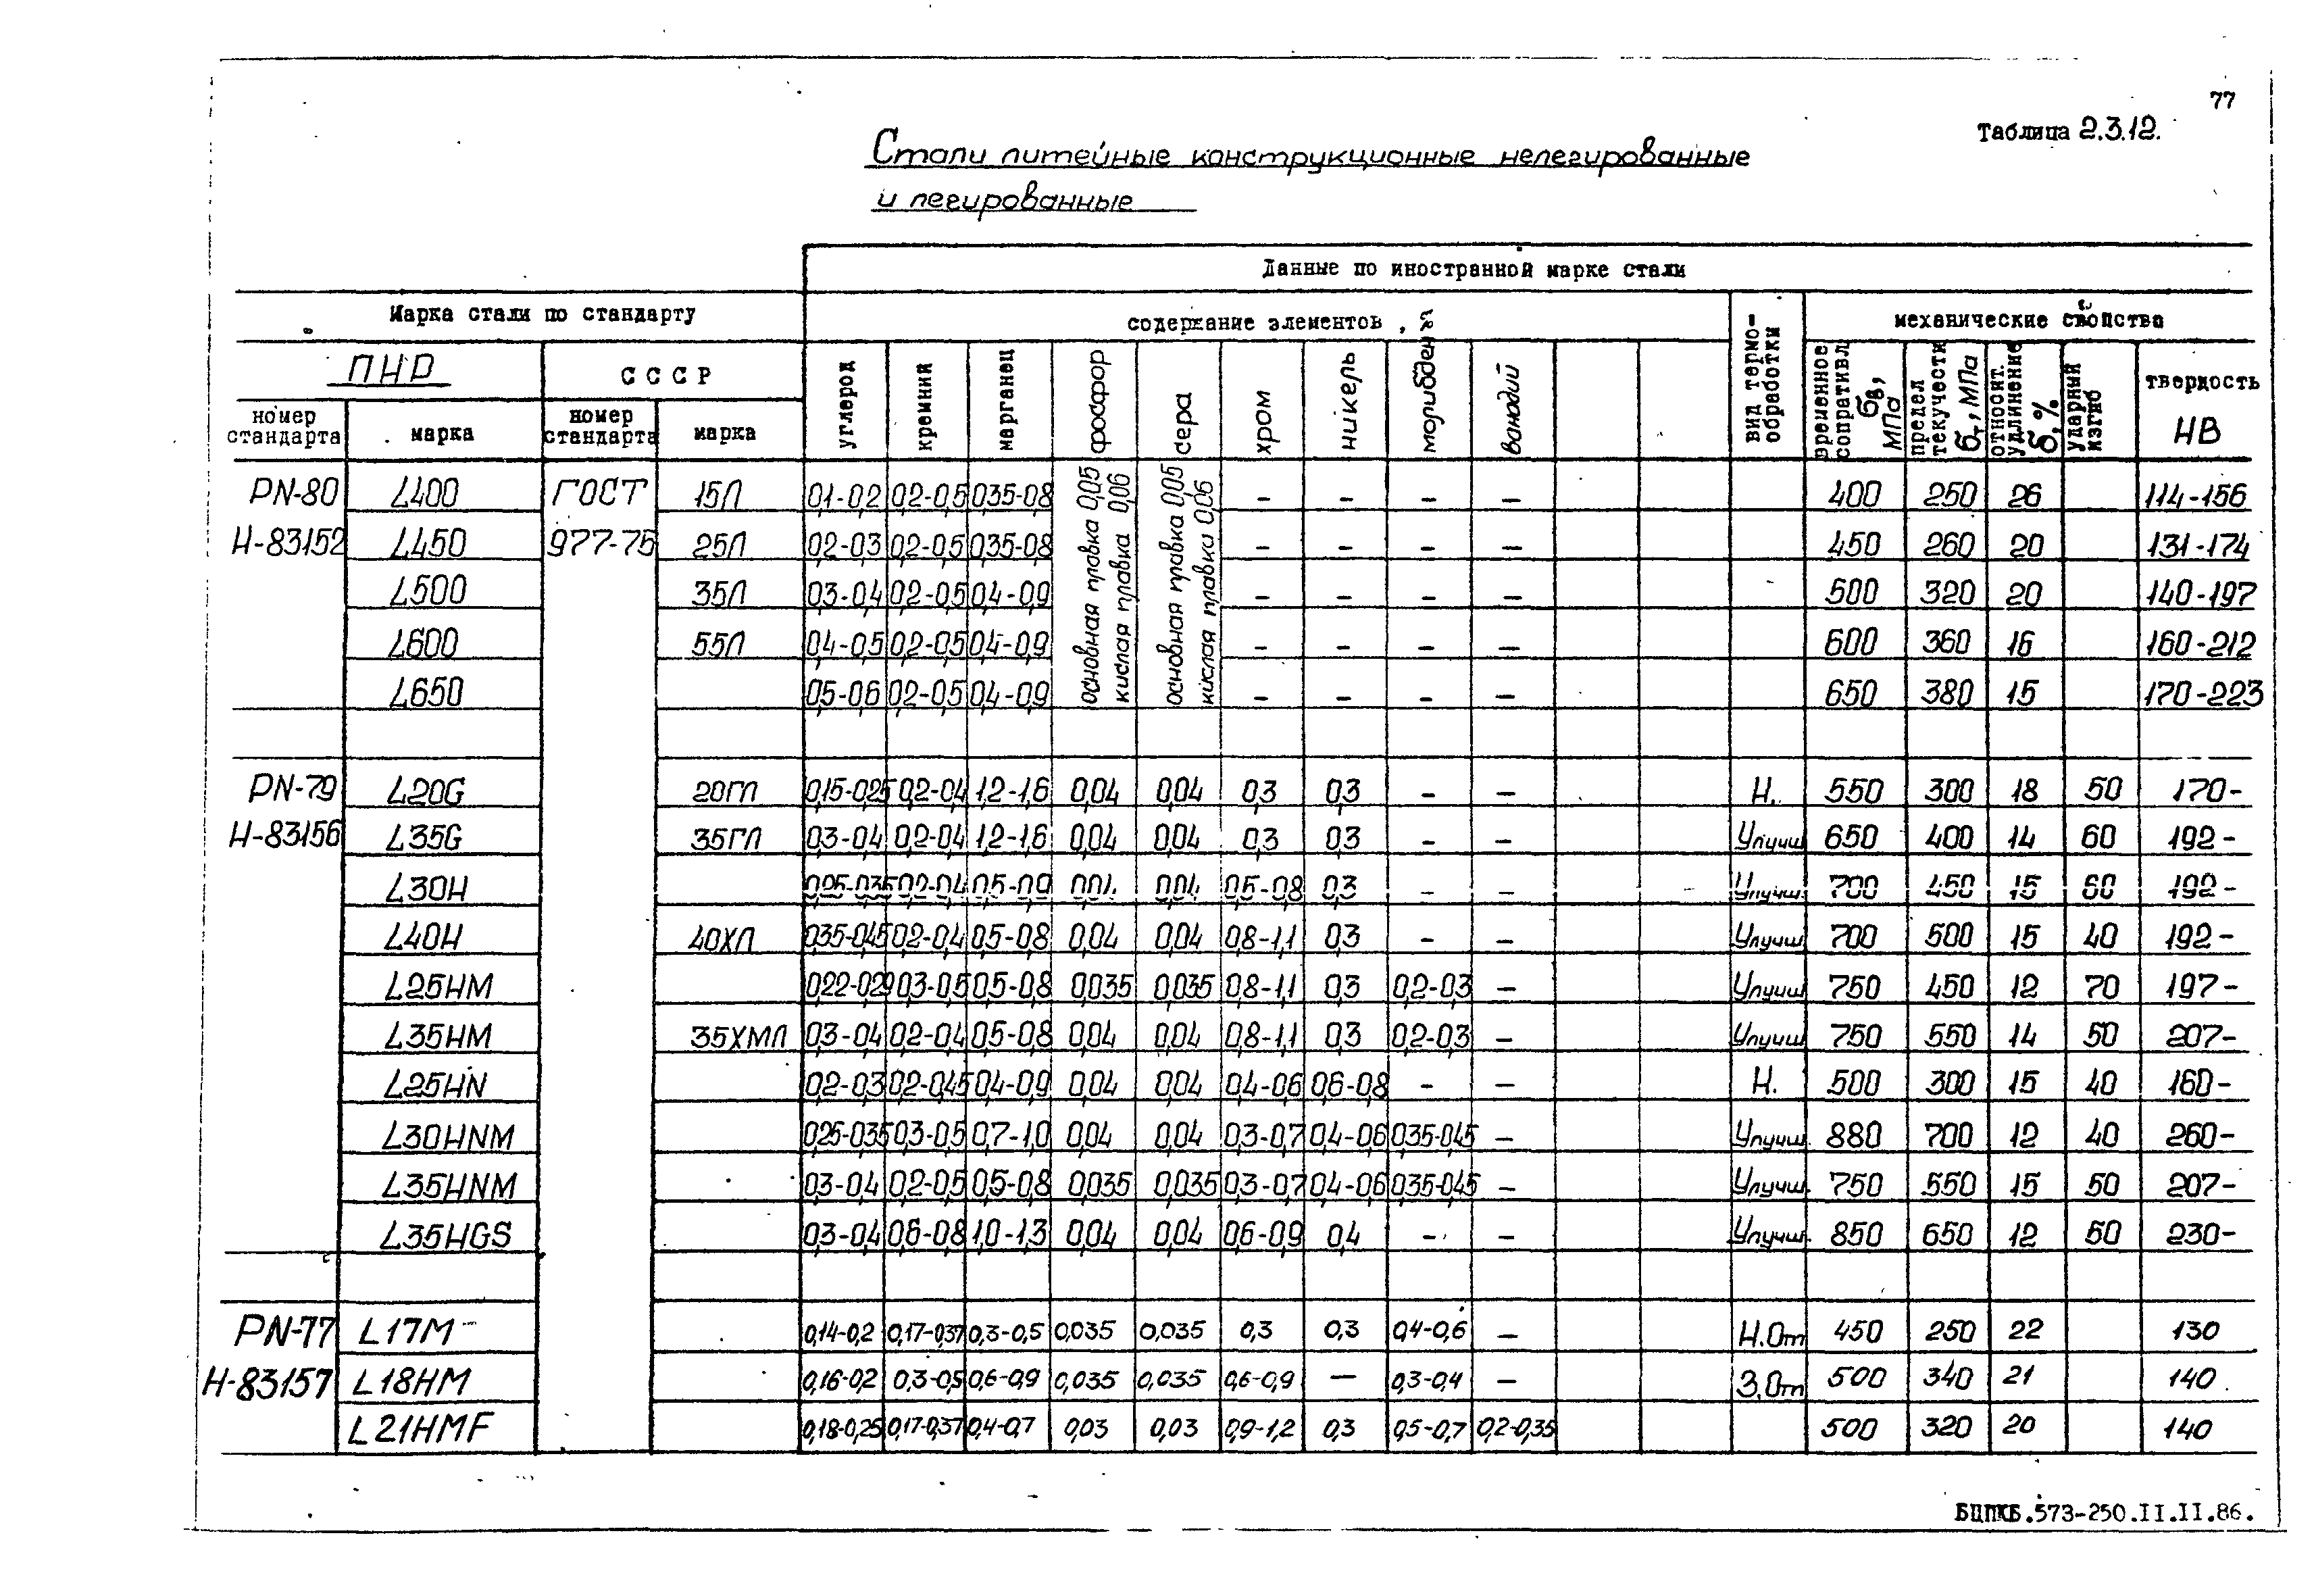 77
Таблица 2.3.12.
Стали литейные конструкционные нелегированные
и легированные
Данные по иностранной марке стали
Марка стали по стандарту
содержание элементов , %
вид термо-обработки
механические свойства
ПНР
СССР
углерод
кремний
марганец
фосфор
сера
хром
никель
молибден
ванадий
временное сопротивл. бв, МПа
предел текучести бт, МПа
относит. удлинение б, %
ударный изгиб
твердость НВ
номер стандарта марка номер стандарта марка
основная плавка 0,05
кислая плавка 0,06
основная плавка 0,05
кислая плавка 0,06
PN-80 L400 ГОСТ 15Л 0,1-0,2 0,2-0,5 0,35-0,8 – – – – 400 250 26 114-156
H-83152 L450 977-75 25Л 0,2-0,3 0,2-0,5 0,35-0,8 – – – – 450 260 20 131-174
L500 35Л 0,3-0,4 0,2-0,5 0,4-0,9 – – – – 500 320 20 140-197
L600 55Л 0,4-0,5 0,2-0,5 0,4-0,9 – – – – 600 360 16 160-212
L650 0,5-0,6 0,2-0,5 0,4-0,9 – – – – 650 380 15 170-223
PN-79 L20G 20ГЛ 0,15-0,25 0,2-0,4 1,2-1,6 0,04 0,04 0,3 0,3 – – Н. 550 300 18 50 170-
H-83156 L35G 35ГЛ 0,3-0,4 0,2-0,4 1,2-1,6 0,04 0,04 0,3 0,3 – – Улучш 650 400 14 60 192-
L30H 0,25-0,35 0,2-0,4 0,5-0,9 0,04 0,04 0,5-0,8 0,3 – – Улучш. 700 450 15 60 192-
L40H 40ХЛ 0,35-0,45 0,2-0,4 0,5-0,8 0,04 0,04 0,8-1,1 0,3 – – Улучш 700 500 15 40 192-
L25HM 0,22-0,29 0,3-0,5 0,5-0,8 0,035 0,035 0,8-1,1 0,3 0,2-0,3 – Улучш 750 450 12 70 197-
L35HM 35ХМЛ 0,3-0,4 0,2-0,4 0,5-0,8 0,04 0,04 0,8-1,1 0,3 0,2-0,3 – Улучш 750 550 14 50 207-
L25HN 0,2-0,3 0,2-0,45 0,4-0,9 0,04 0,04 0,4-0,6 0,6-0,8 – – Н. 500 300 15 40 160-
L30HNM 0,25-0,35 0,3-0,5 0,7-1,0 0,04 0,04 0,3-0,7 0,4-0,6 0,35-0,45 – Улучш. 880 700 12 40 260-
L35HNM 0,3-0,4 0,2-0,5 0,5-0,8 0,035 0,035 0,3-0,7 0,4-0,6 0,35-0,45 – Улучш. 750 550 15 50 207-
L35HGS 0,3-0,4 0,6-0,8 1,0-1,3 0,04 0,04 0,6-0,9 0,4 – – Улучш. 850 650 12 50 230-
PN-77 L17M 0,14-0,2 0,17-0,37 0,3-0,5 0,035 0,035 0,3 0,3 0,4-0,6 – Н.От 450 250 22 130
H-83157 L18HM 0,16-0,2 0,3-0,5 0,6-0,9 0,035 0,035 0,6-0,9 — 0,3-0,4 – З.От 500 340 21 140
L21HMF 0,18-0,25 0,17-0,37 0,4-0,7 0,03 0,03 0,9-1,2 0,3 0,5-0,7 0,2-0,35 500 320 20 140
БЦПКБ.573-250.II.II.86.